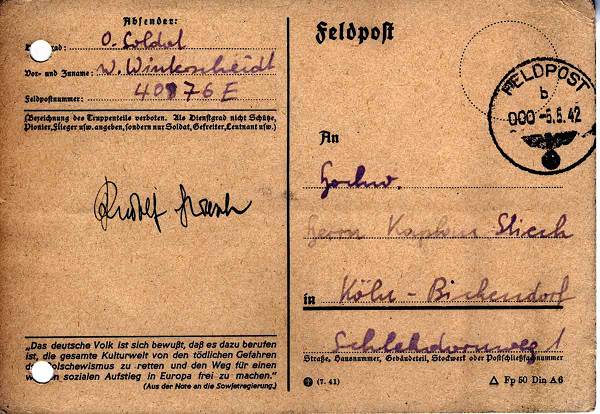 Absender:
Dienstgrad: O. Soldat
Vor- und Zuname: W. Winkscheidt
Feldpostnummer: 40876 E
(Bezeichnung des Truppenteils verboten. Als Dienstgrad nicht Schütze,
Pionier, Flieger usw. angeben, sondern nur Soldat, Gefreiter, Leutnant usw.)
Rudolf
"Das deutsche Volk ist sich bewußt, daß es dazu berufen
ist, die gesamte Kulturwelt von den tödlichen Gefahren
Bolschewismus zu retten und den Weg für einen
sozialen Aufstieg in Europa frei zu machen."
(Aus der Note an die Sowjetregierung.)
Feldpost
FELDPOST
b
000 -5.6.42
An
Hochw.
Herrn Kaplan
in Köln - Bickendorf
Schlehdornweg 1
Straße, Hausnummer, Gebäudeteil, Stockwerk oder Postschließfachnummer
(7. 41)
Fp 50 Din A6